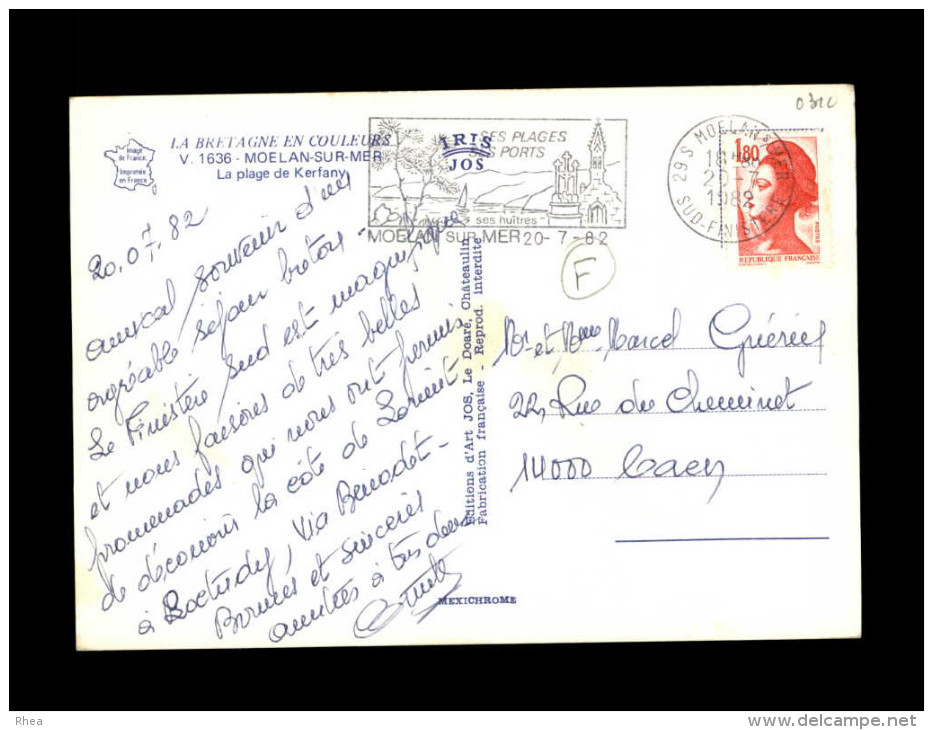 031C
LA BRETAGNE EN COULEURS
V. 1636 - MOELAN-SUR-MER
La plage de Kerfany
Image
de France
Imprimée
en France
IRIS
JOS
SES PLAGES
SES PORTS
ses huîtres
MOELAN SUR MER 20-7-82
29S MOELAN S/ MER
18H
20-7
1982
SUD-FINISTERE
1,80
POSTES
REPUBLIQUE FRANÇAISE
F
20.07.82
amical souvenir d'un
agréable séjour breton -
Le Finistère Sud est magnifique
et nous faisons de très belles
promenades qui nous ont permis
de découvrir la côte de Lorient
à Loctudy, via Benodet -
Bonnes et sincères
amitiés à tous deux
Mr et Mme Marcel
22, Rue du Cheminet
14000 Caen
Editions d'Art JOS, Le Doaré, Châteaulin
Fabrication française - Reprod. interdite
MEXICHROME
Rhea
www.delcampe.net